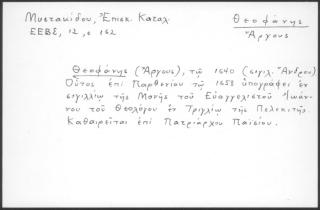 Μυστακίδου, Ἐπισκ. Καταλ.
ΕΕΒΣ, 12, σ 162
Θεοφάνης
Ἄργους
Θεοφάνης (Ἄργους), τῷ 1640 (σιγιλ. Ἄνδρου)
Οὗτος ἐπὶ Παρθενίου τῷ 1653 ὑπογράφει ἐν
σιγιλλίῳ τῆς Μονῆς τοῦ Εὐαγγελιστοῦ Ἰωάν-
νου τοῦ Θεολόγου ἐν Τριγλίῳ τῆς Πελεκιτῆς
Καθαιρεῖται ἐπὶ Πατριάρχου Παϊσίου.